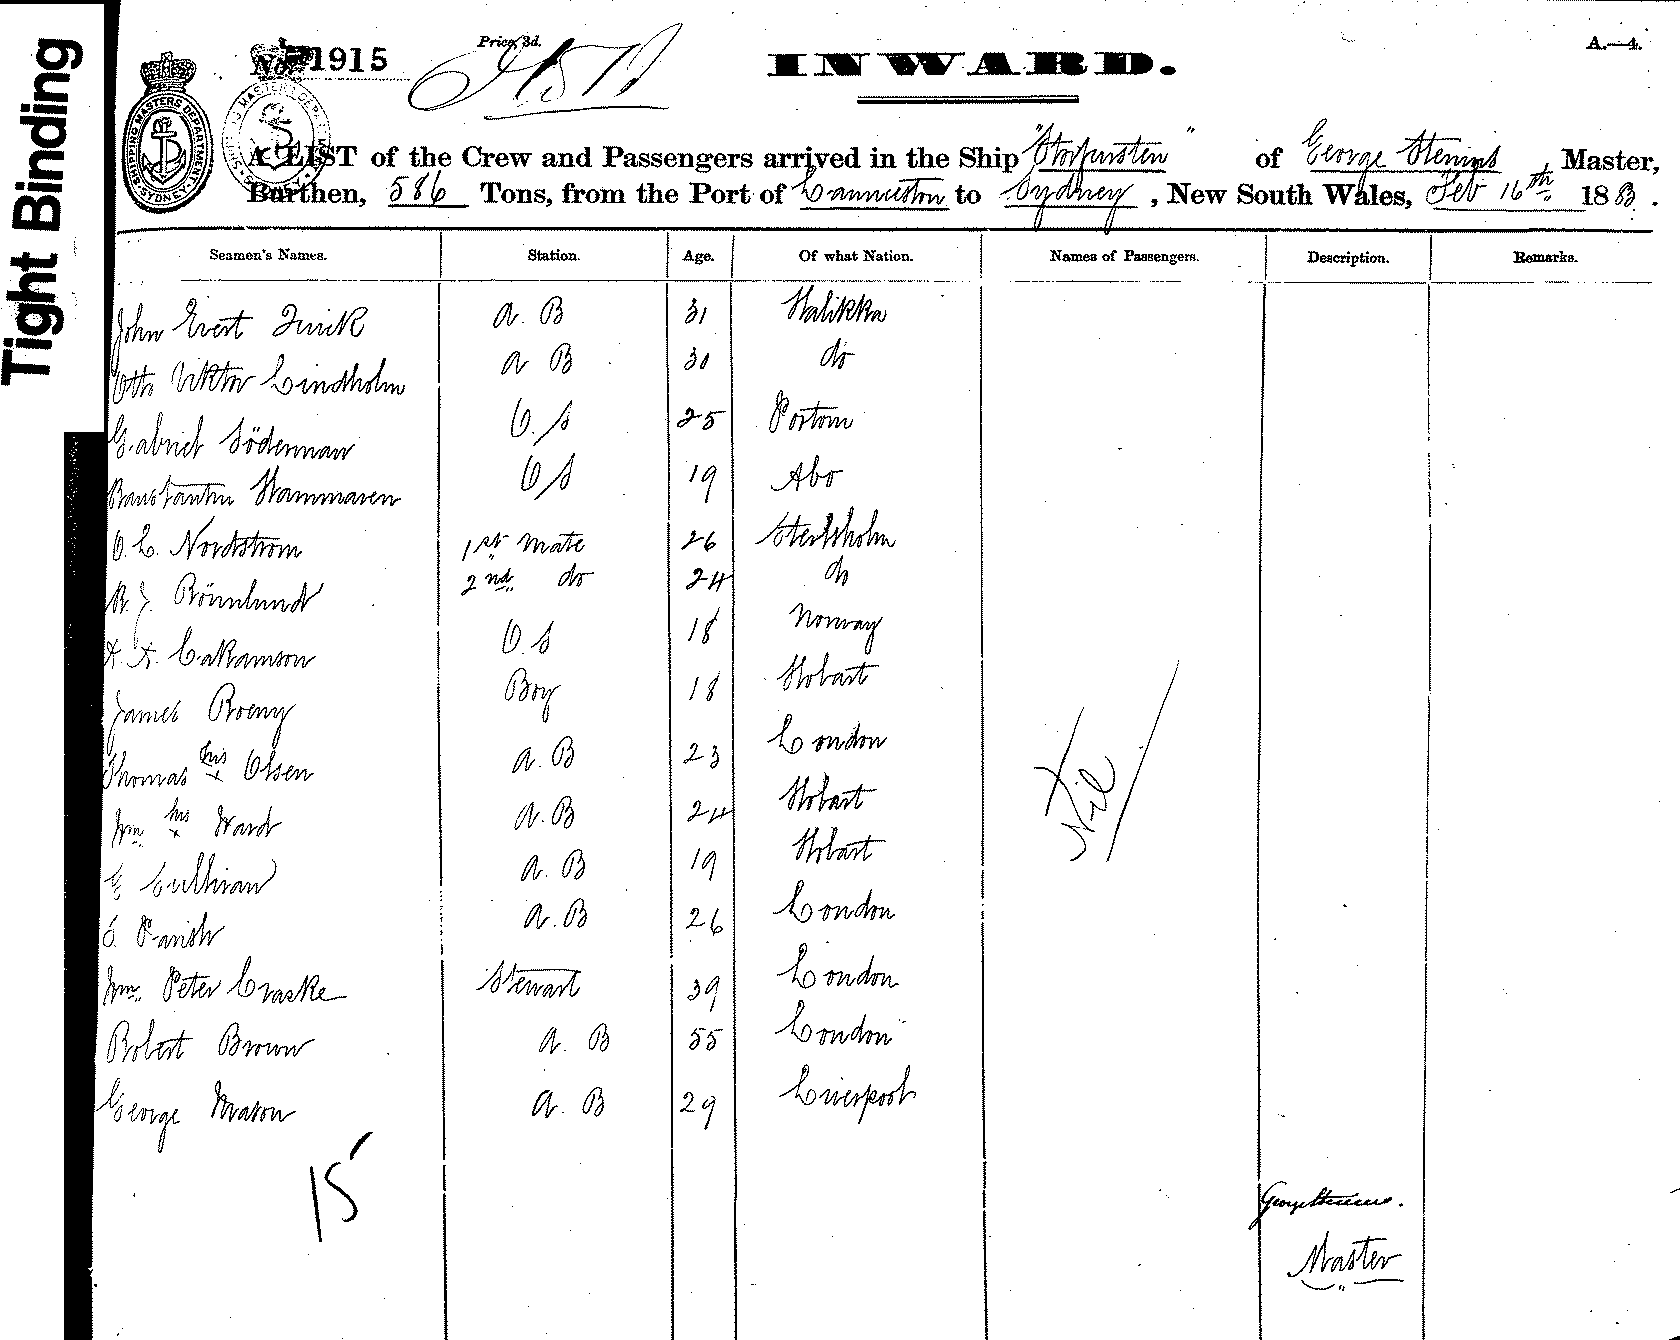 Tight Binding
No. 1915
Price, 3d.
INWARD.
A.—4.
SHIPPING MASTERS DEPARTMENT
A LIST of the Crew and Passengers arrived in the Ship "Storfursten" of George Stenius, Master,
Burthen, 586 Tons, from the Port of Launceston to Sydney, New South Wales, Feb 16th 1883.
Seamen's Names. Station. Age. Of what Nation. Names of Passengers. Description. Remarks.
John Evert a.B 31 Halikka
Otto Viktor Lindholm a B 30 do
Gabriel Söderman O.S 25 Portom
Hammaren O S 19 Abo
O. L. Nordstrom 1st Mate 26
Rönnlund 2nd do 24 do
O.S 18 Norway
James Boy 18 Hobart
Thomas his x Olsen a.B 23 London
Wm his x Ward a.B 24 Hobart
Sullivan a.B 19 Hobart
Parish a.B 26 London
Wm. Peter Craske Stewart 39 London
Robert Brown a. B 55 London
George Mason a. B 29 Liverpool
Nil
15
George Stenius.
Master